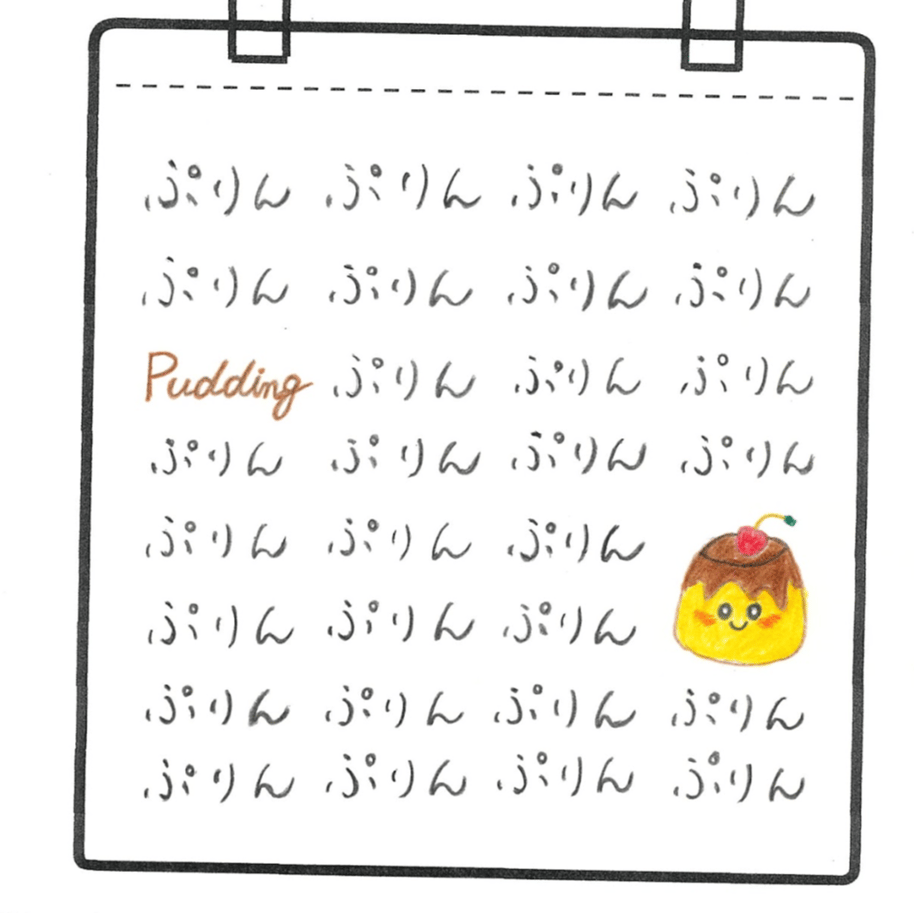 ぷりん ぷりん ぷりん ぷりん
ぷりん ぷりん ぷりん ぷりん
Pudding ぷりん ぷりん ぷりん
ぷりん ぷりん ぷりん ぷりん
ぷりん ぷりん ぷりん
ぷりん ぷりん ぷりん
ぷりん ぷりん ぷりん ぷりん
ぷりん ぷりん ぷりん ぷりん